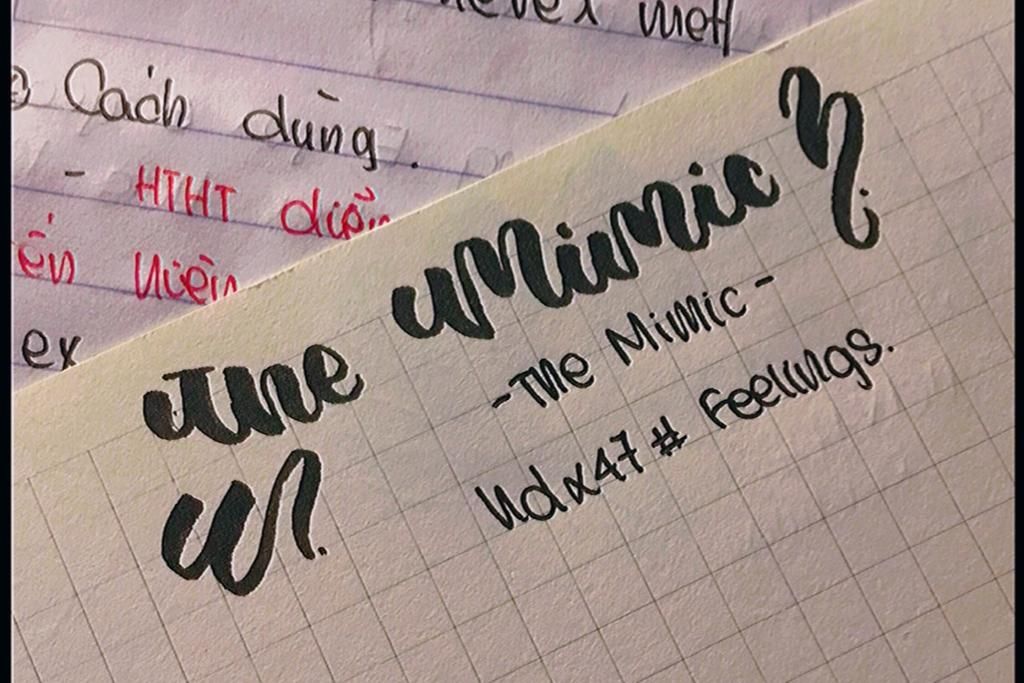 never met
Cách dùng.
- HTHT diễn
ex
The Mimic
- The Mimic -
Ndx47 # Feelings.